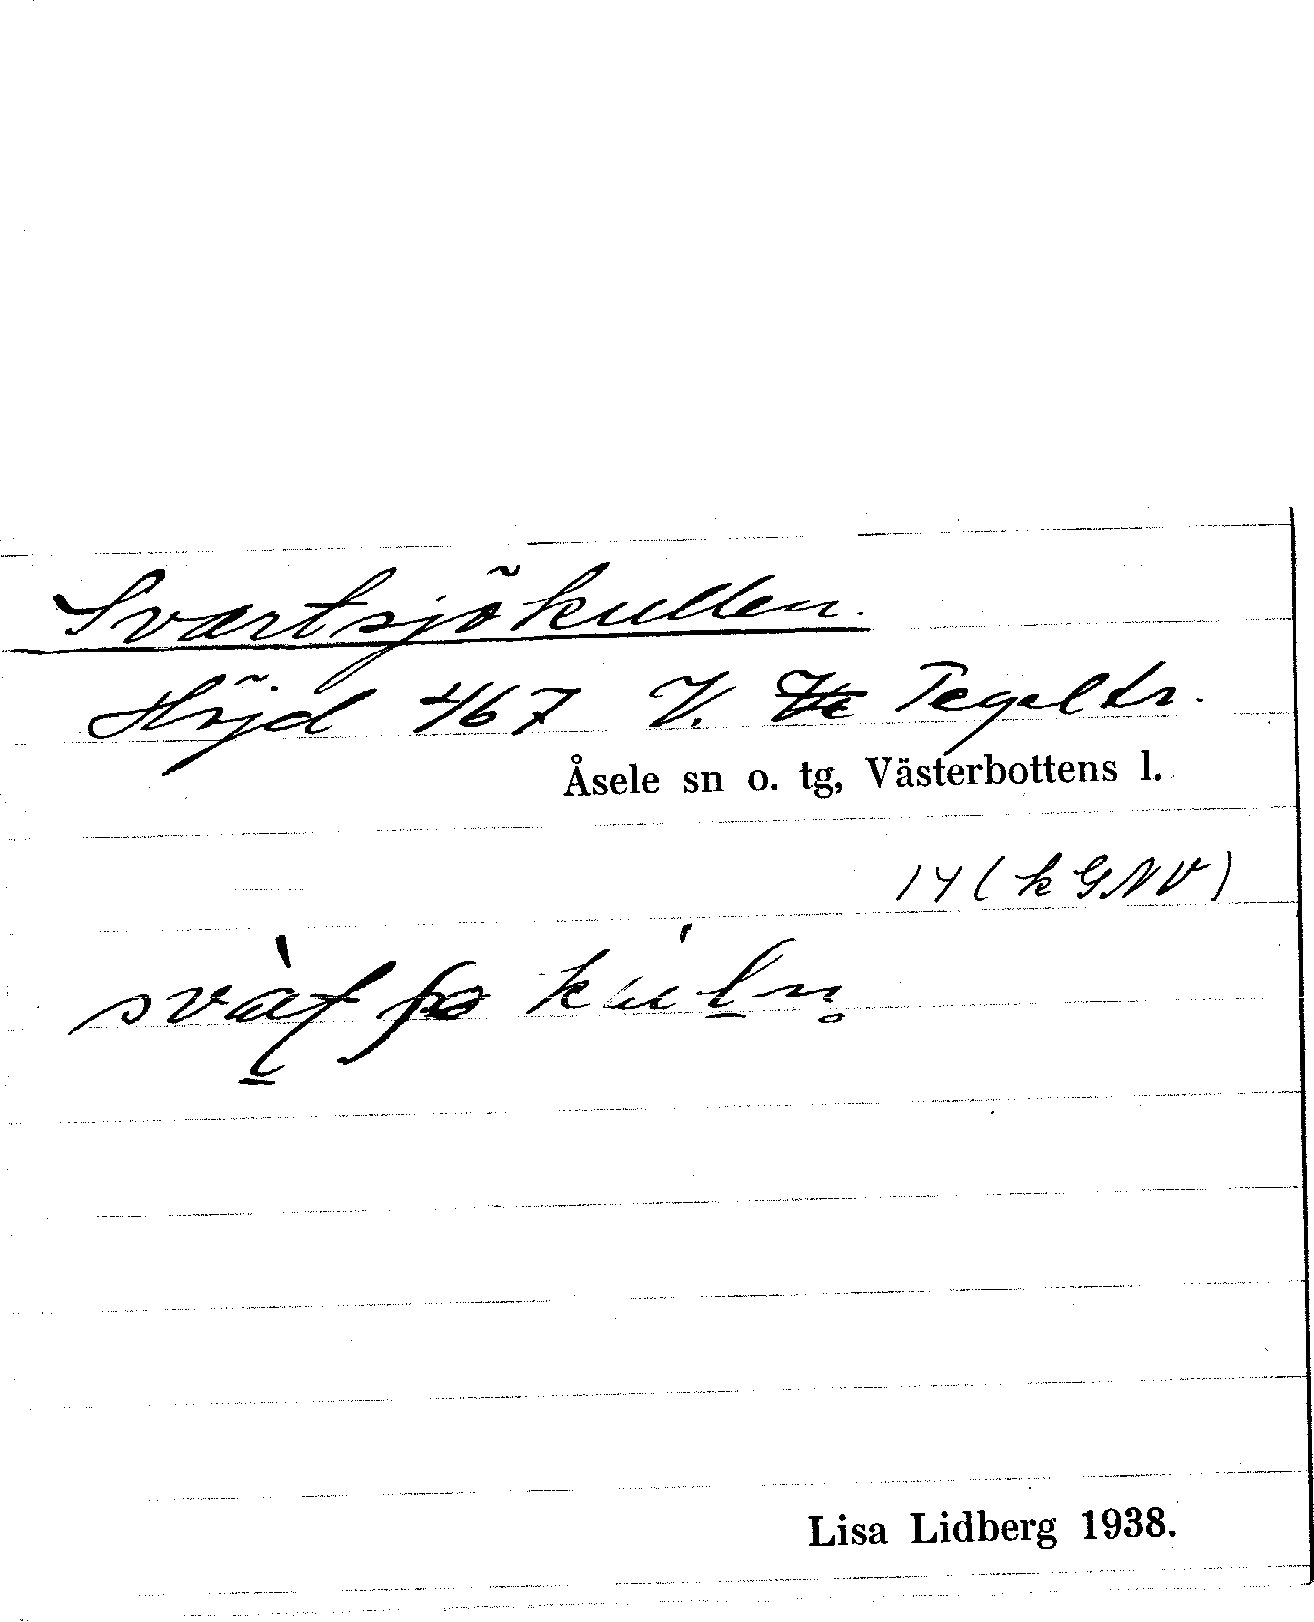 Svartsjökullen.
Höjd 467 V. Tegeltr.
Åsele sn o. tg, Västerbottens l.
14 (k G NV)
Lisa Lidberg 1938.